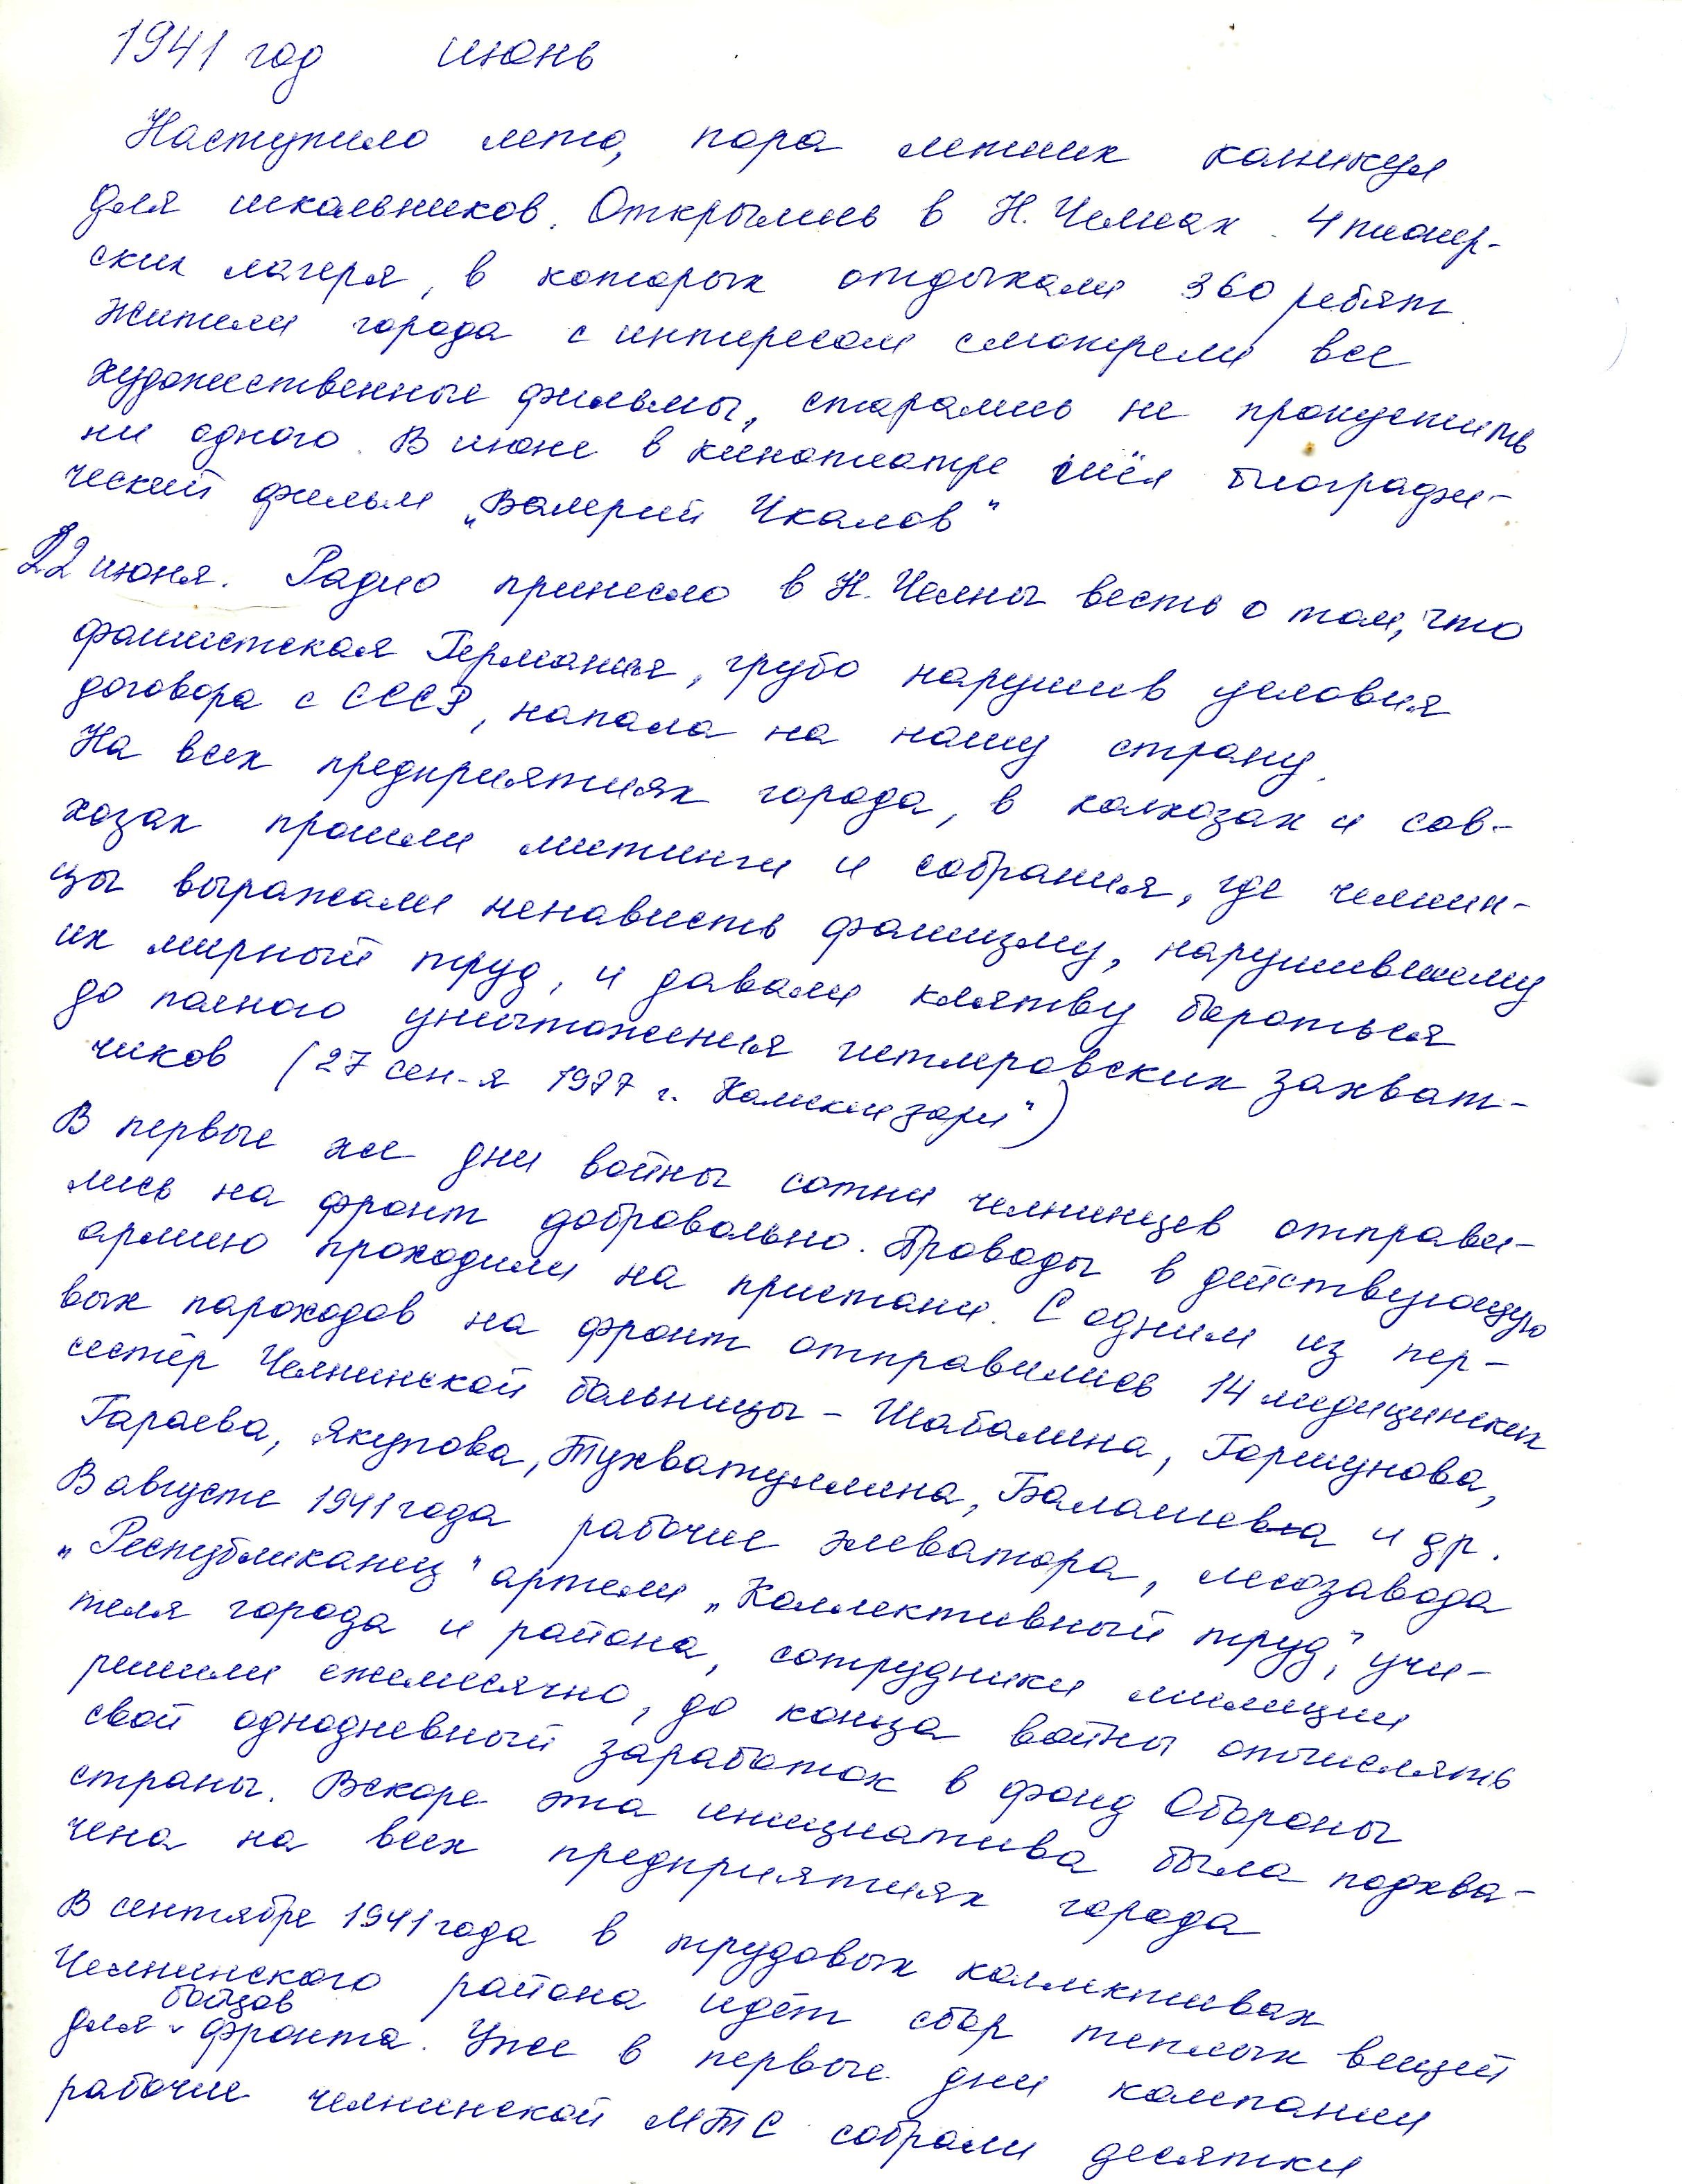 1941 год июнь
Наступило лето, пора летних каникул
для школьников. Открылись в Н. Челнах 4 пионер-
ских лагеря, в которых отдыхали 360 ребят.
Жители города с интересом смотрели все
художественные фильмы, старались не пропустить
ни одного. В июне в кинотеатре шёл биографи-
ческий фильм „Валерий Чкалов"
22 июня. Радио принесло в Н. Челны весть о том, что
фашистская Германия, грубо нарушив условия
договора с СССР, напала на нашу страну.
На всех предприятиях города, в колхозах и сов-
хозах прошли митинги и собрания, где челнин-
цы выражали ненависть фашизму, нарушившему
их мирный труд, и давали клятву бороться
до полного уничтожения гитлеровских захват-
чиков (27 сен-я 1977 г. Камские зори")
В первые же дни войны сотни челнинцев отправи-
лись на фронт добровольно. Проводы в действующую
армию проходили на пристани. С одним из пер-
вых пароходов на фронт отправились 14 медицинских
сестёр Челнинской больницы - Шабалина, Горшунова,
Гараева, Якупова, Тухватуллина, Балашева и др.
В августе 1941 года рабочие элеватора, лесозавода
„Республиканец" артели „Коллективный труд", учи-
теля города и района, сотрудники милиции
решили ежемесячно, до конца войны отчислять
свой однодневный заработок в фонд Обороны
страны. Вскоре эта инициатива была подхва-
чена на всех предприятиях города
В сентябре 1941 года в трудовых коллективах
Челнинского района идёт сбор теплых вещей
для бойцов фронта. Уже в первые дни компании
рабочие челнинской МТС собрали десятки